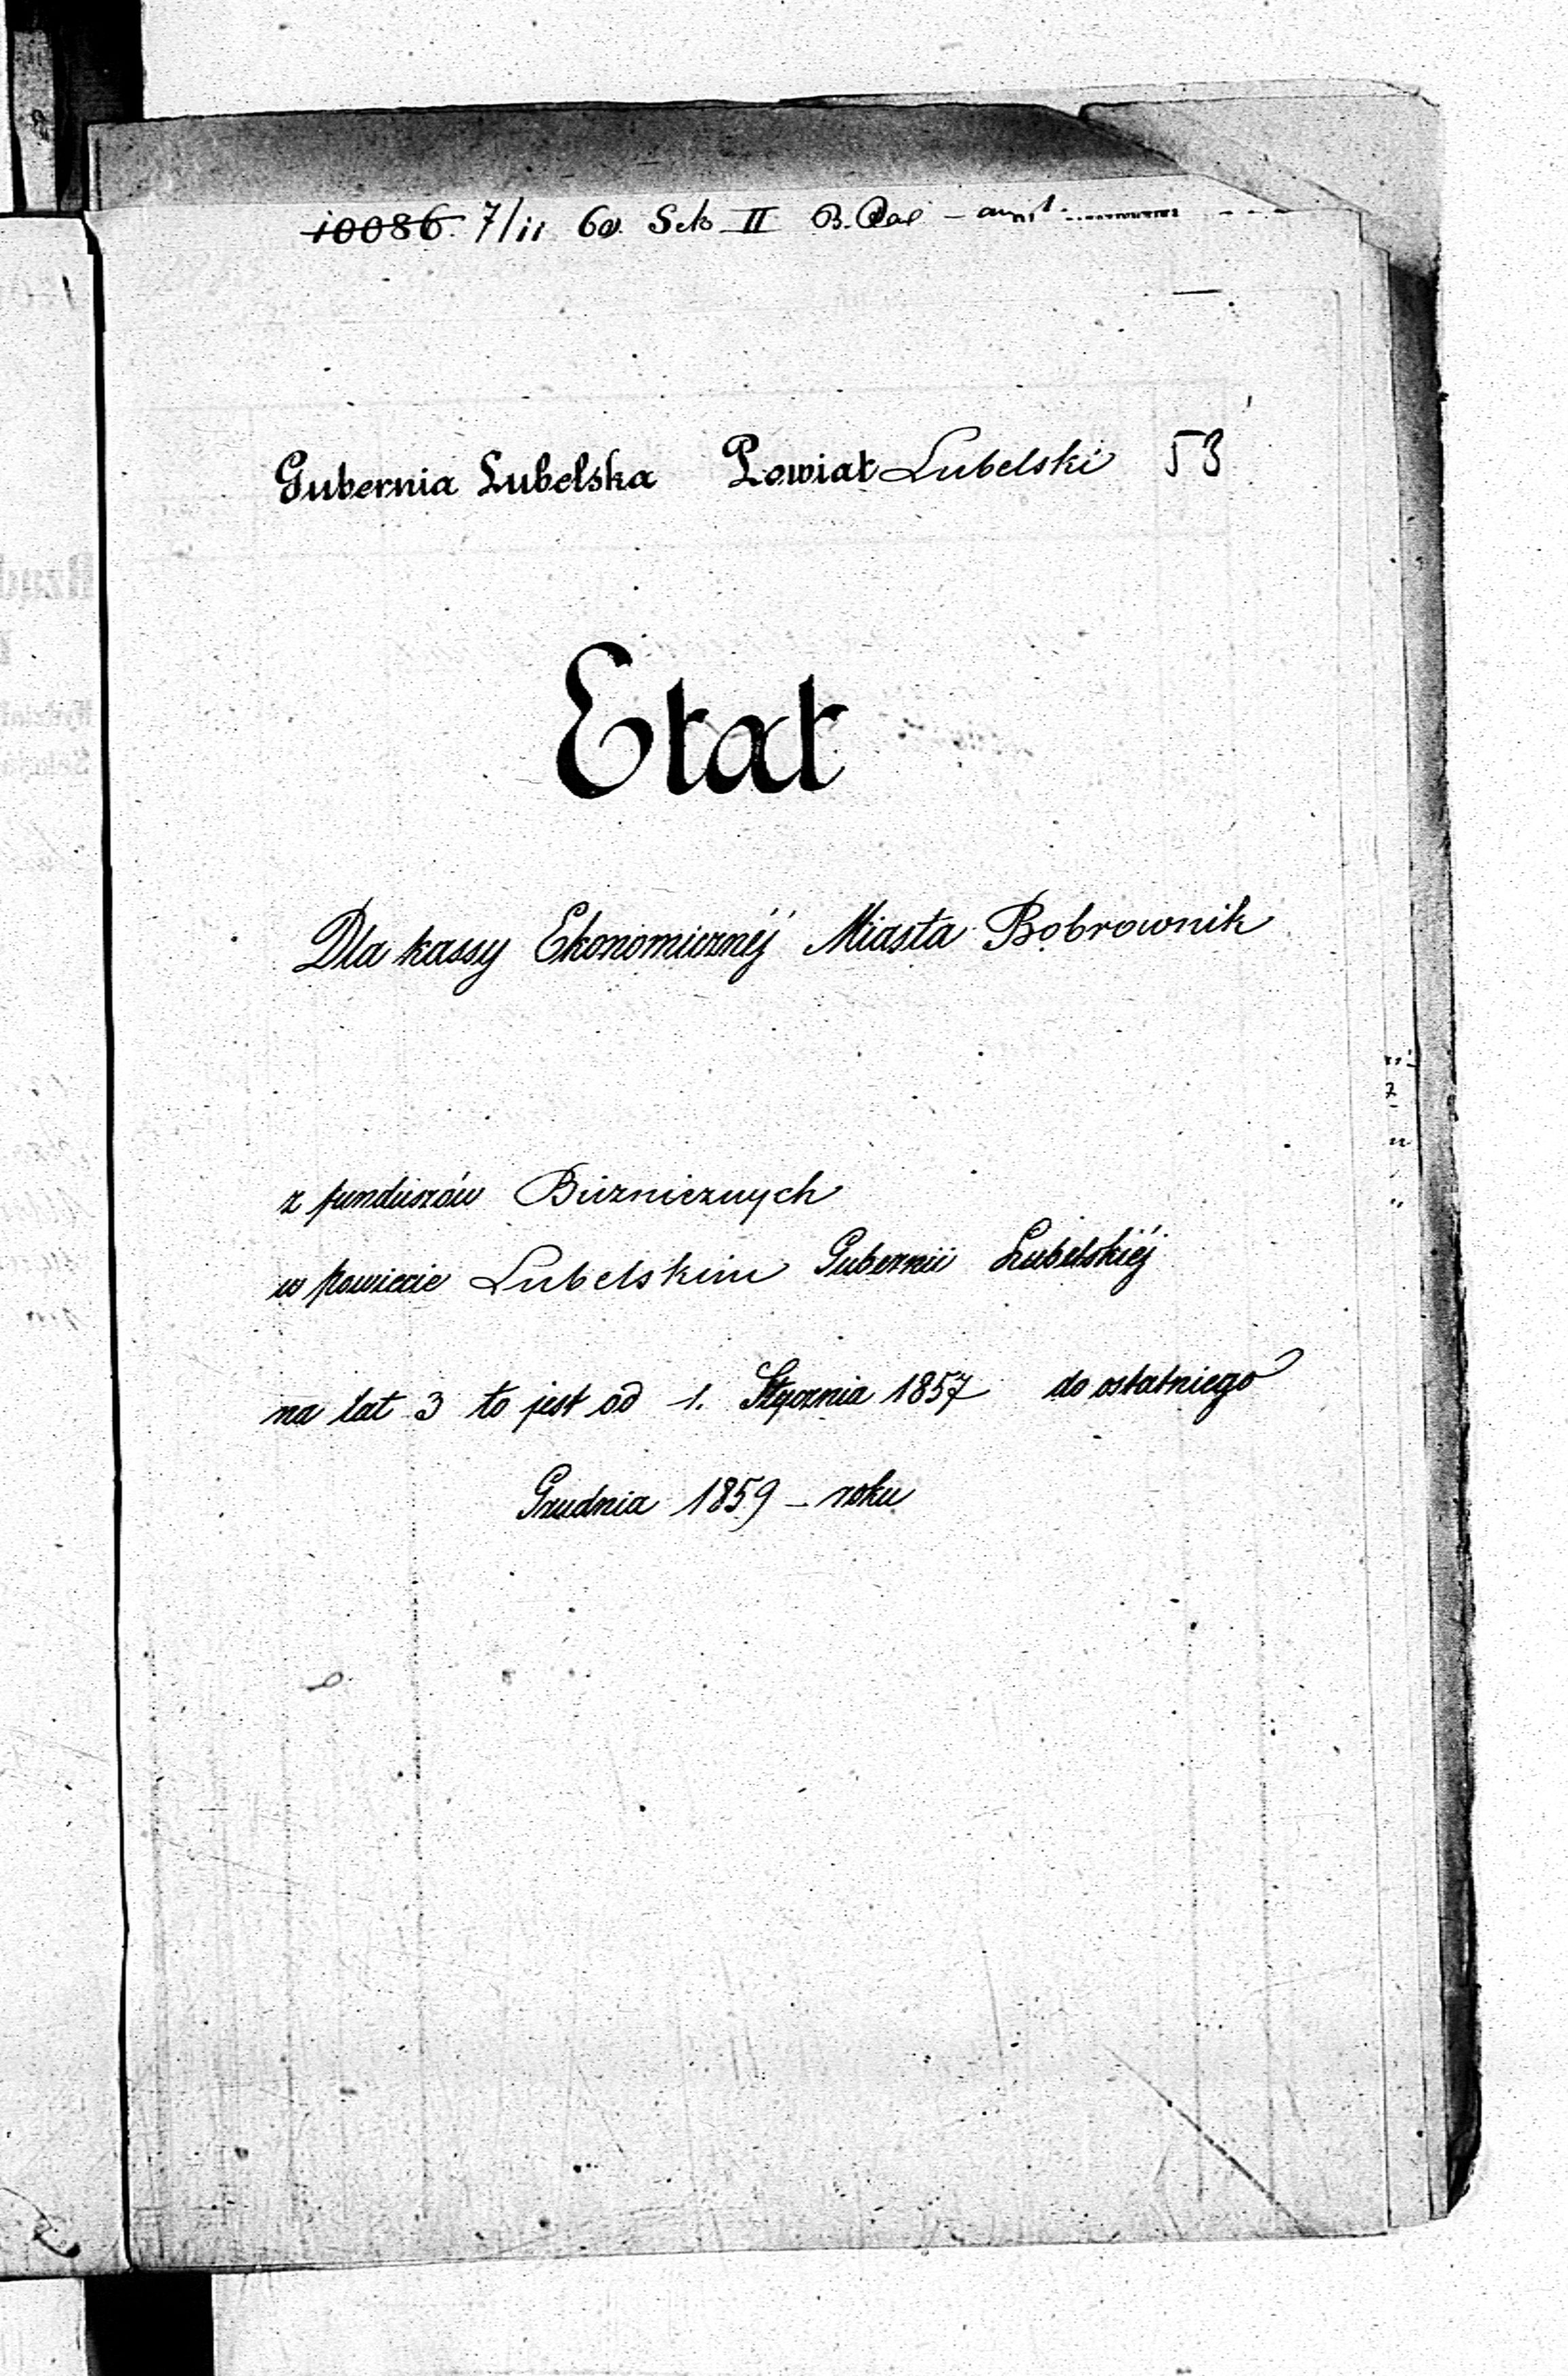 10086. 7/11 60. Sek II
Gubernia Lubelska Powiat Lubelski 53
Etat
Dla kassy Ekonomicznéj Miasta Bobrownik
z funduszów Buzniczuych
w powiecie Lubelskim Gubernii Lubelskiéj
na lat 3 to jest od 1. Stycznia 1857 do ostatniego
Grudnia 1859 – roku